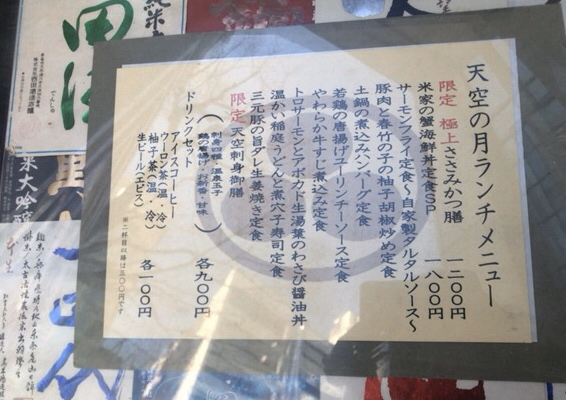 天空の月ランチメニュー
限定 極上ささみかつ膳 一二〇〇円
米家の蟹海鮮丼定食SP 一八〇〇円
サーモンフライ定食~自家製タルタルソース~
豚肉と春竹の子の柚子胡椒炒め定食
土鍋の煮込みハンバーグ定食
若鶏の唐揚げユーリンチーソース定食
やわらか牛すじ煮込み定食
トロサーモンとアボカド生湯葉のわさび醤油丼
温かい稲庭うどんと煮穴子寿司定食
三元豚の旨ダレ生姜焼き定食
限定 天空刺身御膳
(刺身四種・温度玉子
鶏の唐揚げ・お新香・甘味)
各九〇〇円
ドリンクセット
アイスコーヒー
ウーロン茶(温・冷)
柚子茶(温・冷)
生ビール(エビス)
各一〇〇円
※二杯目以降は三〇〇円です
純米
田酒
株式会社西田酒造店醸
米大吟醸